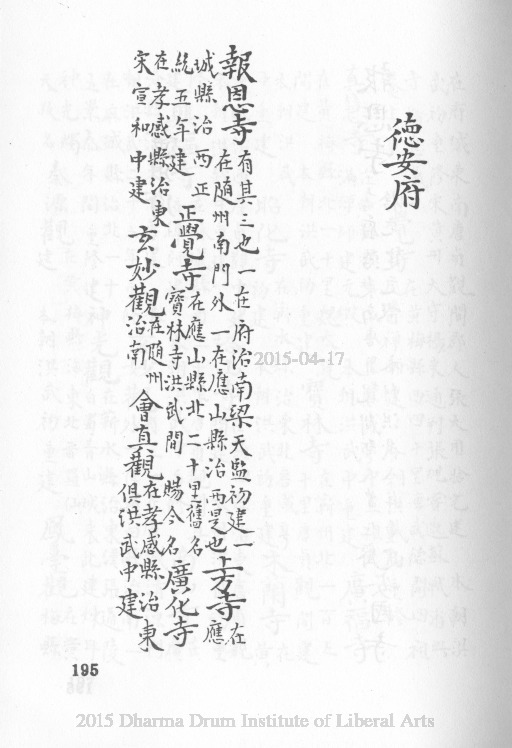 德安府
報恩寺
有其三也一在府治南梁天監初建一
在随州南門外一在應山縣治西是也
上方寺
在
應
城縣治西正
統五年建
正覺寺
在應山縣北二十里舊名
寶林寺洪武間賜今名
廣化寺
在孝感縣治東
宋宣和中建
玄妙觀
在随州
治南
會真觀
在孝感縣治東
俱洪武中建
195
2015-04-17
2015 Dharma Drum Institute of Liberal Arts